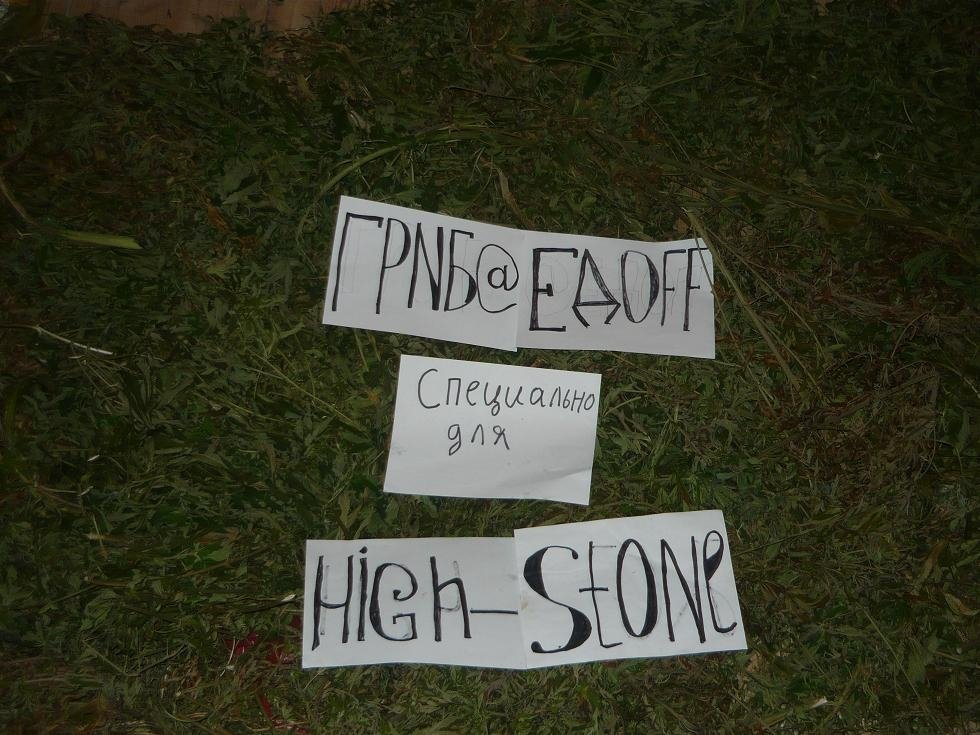 ГРИБ@ЕДОFF
Специально
для
HiGh-StONe